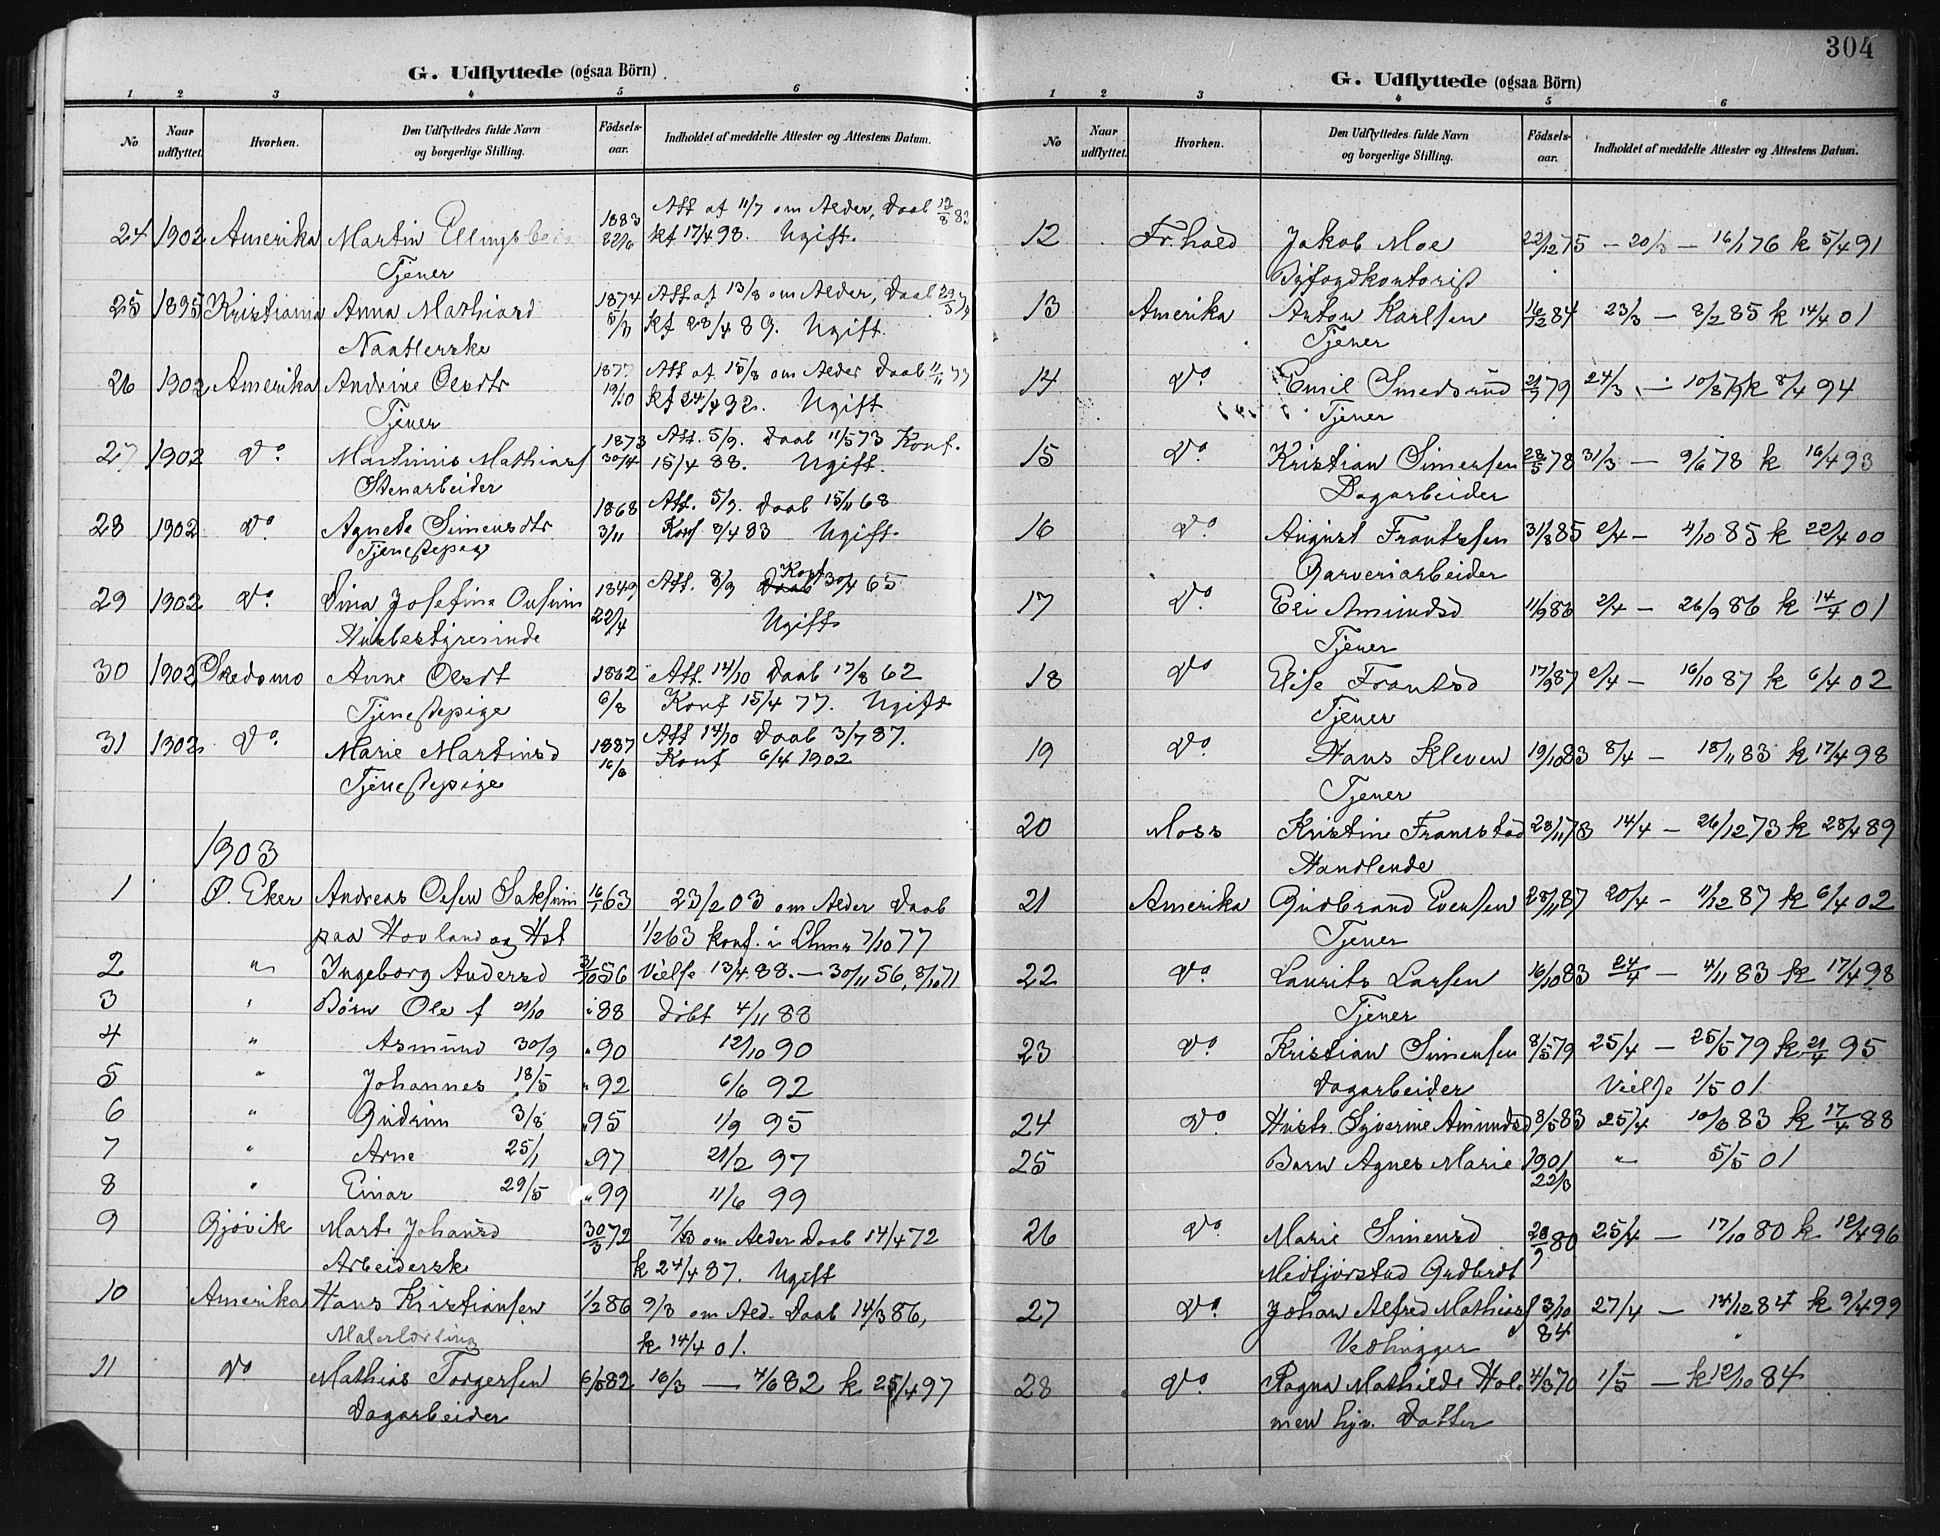 G. Udflyttede (ogsaa Börn)
1 2 3 4 5 6
No Naar udflyttet. Hvorhen. Den Udflyttedes fulde Navn og borgerlige Stilling. Födsels-aar. Indholdet af meddelte Attester og Attestens Datum.
24 1902 Amerika Martin Ellingsbe 1883 22/6 Att af 11/7 om Alder, Daab 12/8 83
Tjener kf 17/4 98. Ugift.
25 1895 Kristiania Anna Mathiasd 1874 5/3 Att af 13/8 om Alder, Daab 29/3 74
Naatlerske kf 28/4 89. Ugift
26 1902 Amerika Andrine Olesdtr 1877 19/10 Att af 15/8 om Alder Daab 11/11 77
Tjener kf 24/4 92. Ugift
27 1902 Do. Martinius Mathiass 1873 30/4 Att. 5/9. Daab 11/5 73 Konf.
Stenarbeider 15/4 88. Ugift.
28 1902 Do. Agnete Simensdtr 1868 3/11 Att. 5/9. Daab 15/11 68
Tjenestepige Konf 8/4 83 Ugift.
29 1902 Do. Dina Josefine 1849 22/4 Att. 8/9 Daab Konf 30/4 65
Husbestyrerinde Ugift
30 1902 Skedsmo Anne Olesdt 1862 6/8 Att. 14/10 Daab 17/8 62
Tjenestepige Konf 15/4 77. Ugift
31 1902 Do. Marie Martinsd 1887 16/6 Att 14/10 Daab 3/7 87.
Tjenestepige Konf 6/4 1902
1903
1 Ø. Eker Andreas Olsen 16/1 63 23/2 03 om Alder Daab
paa Hovland og Hst 1/2 63 konf. i 7/10 77
2 " Ingeborg Andersd 31/10 56 Vielse 13/4 88. — 30/11 56, 8/10 71
3 " Børn Ole f 21/10 " 88 Døbt 4/11 88
4 " Asmund 30/9 " 90 12/10 90
5 " Johannes 18/5 " 92 6/6 92
6 " Gudrun 3/8 " 95 1/9 95
7 " Arne 25/1 " 97 21/2 97
8 " Einar 29/5 " 99 11/6 99
9 Gjøvik Marte Johansd 30/3 72 7/3 om Alder Daab 14/4 72
Arbeiderske k 24/4 87. Ugift
10 Amerika Hans Kristiansen 1/2 86 9/3 om Ald. Daab 14/3 86,
Malerlærling k 14/4 01.
11 Do Mathias Torgersen 6/5 82 16/3 — 4/6 82 k 25/4 97
Dagarbeider
304
G. Udflyttede (ogsaa Börn)
1 2 3 4 5 6
No Naar udflyttet. Hvorhen. Den Udflyttedes fulde Navn og borgerlige Stilling. Födsels-aar. Indholdet af meddelte Attester og Attestens Datum.
12 Fr.hald Jakob Moe 22/12 75 — 20/3 — 16/1 76 k 5/4 91
Byfogdkontorist
13 Amerika Anton Karlsen 16/12 84 23/3 — 8/2 85 k 14/4 01
Tjener
14 Do. Emil Smedsrud 21/7 79 24/3 — 10/8 79 k 8/4 94
Tjener
15 Do. Kristian Simensen 28/5 78 31/3 — 9/6 78 k 16/4 93
Dagarbeider
16 Do. August Frantzsen 31/8 85 2/4 — 4/10 85 k 22/4 00
Garveriarbeider
17 Do. Eli Amundsd 11/9 86 2/4 — 26/9 86 k 14/4 01
Tjener
18 Do Elise Frantsd 17/9 87 2/4 — 16/10 87 k 6/4 02
Tjener
19 Do. Hans Kleven 19/10 83 8/4 — 18/11 83 k 17/4 98
Tjener
20 Moss Kristine Framstad 23/11 73 14/4 — 26/12 73 k 28/4 89
Handlende
21 Amerika Gudbrand Evensen 28/11 87 20/4 — 11/12 87 k 6/4 02
Tjener
22 Do. Laurits Larsen 16/10 83 24/4 — 4/11 83 k 17/4 98
Tjener
23 Do. Kristian Simensen 8/5 79 25/4 — 25/5 79 k 21/4 95
Dagarbeider Vielse 1/5 01.
24 Do. Hustr. Syverine Amundsd 8/5 83 25/4 10/6 83 k 17/4 88
25 Barn Agnes Marie 1901 22/3 " 5/5 01
26 Do. Marie Simensd 28/9 80 25/4 — 17/10 80 k 12/4 96
Medtjørstad Grdbrdt
27 Do. Johan Alfred Mathiass 3/10 84 27/4 — 14/12 84 k 9/4 99
Vedhugger
28 Do. Ragna Mathilde Hol- 4/3 70 1/5 — k 12/10 84
men hjv. Datter